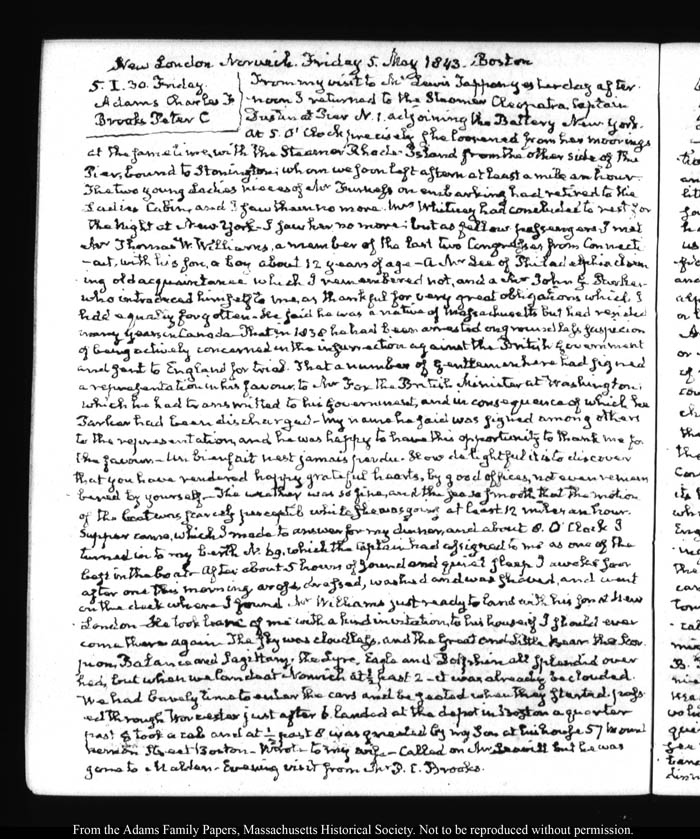 New London Norwich. Friday 5. May 1843. Boston
5. I. 30. Friday
Adams Charles F
Brooks Peter C
From my visit to Mr Lewis Tappan yesterday after-
noon I returned to the Steamer Cleopatra, Captain
Dustan at Pier N. 1. adjoining the Battery New York.
At 5. O'Clock precisely she loosened from her moorings
at the same time, with the Steamer Rhode-Island from the other side of the
Pier, bound to Stonington; whom we soon left astern at least a mile an hour.
The two young Ladies nieces of Mr Furness on embarking had retired to the
Ladies Cabin, and I saw them no more. Mrs Whitney had concluded to rest for
the Night at New-York—I saw her no more; but as fellow passengers I met
Mr Thomas W. Williams, a member of the last two Congresses from Connecti-
-cut, with his son, a boy about 12 years of age—A Mr Lee of Philadelphia claim-
ing old acquaintance which I remembered not, and a Mr John G. Parker
who introduced himself to me, as thankful for very great obligations which I
had equally forgotten. He said he was a native of Massachusetts but had resided
many years in Canada. That in 1838 he had been arrested on groundless suspicion
of being actively concerned in the insurrection against the British Government
and sent to England for trial. That a number of Gentlemen here had signed
a representation in his favour, to Mr Fox the British Minister at Washington;
which he had transmitted to his Government, and in consequence of which he
Parker had been discharged—My name he said was signed among others
to the representation, and he was happy to have this opportunity to thank me for
the favour—Un bienfait n'est jamais perdu. How delightful it is to discover
that you have rendered happy grateful hearts, by good offices, not even remem
bered by yourself—The weather was so fine, and the sea so smooth that the motion
of the boat was scarcely perceptible while she was going at least 12 miles an hour.
Supper came, which I made to answer for my dinner, and about 8. O'Clock I
turned in to my berth N. 69, which the Captain had assigned to me as one of the
best in the boat. After about 5 hours of sound and quiet sleep I awoke soon
after one this morning arose, dressed, washed and was shaved, and went
on the deck where I found Mr Williams just ready to land with his son at New
London. He took leave of me with a kind invitation, to his house if I should ever
come there again. The sky was cloudless, and the Great and Little Bear the Scor
pion, Balance and Sagittary; the Lyre, Eagle and Dolphin all splendid over
hed, but when we landed at Norwich at ½ past 2—it was already beclouded.
We had barely time to enter the cars and be seated when they started. pass
ed through Worcester just after 6. landed at the depot in Boston a quarter
past 8 took a cab and at ½ past 8 was greeted by my Son at his house 57 Mount
Vernon Street Boston—Wrote to my wife—Called on Mr Leavitt but he was
gone to Malden—Evening visit from Mr P. C. Brooks.
From the Adams Family Papers, Massachusetts Historical Society. Not to be reproduced without permission.